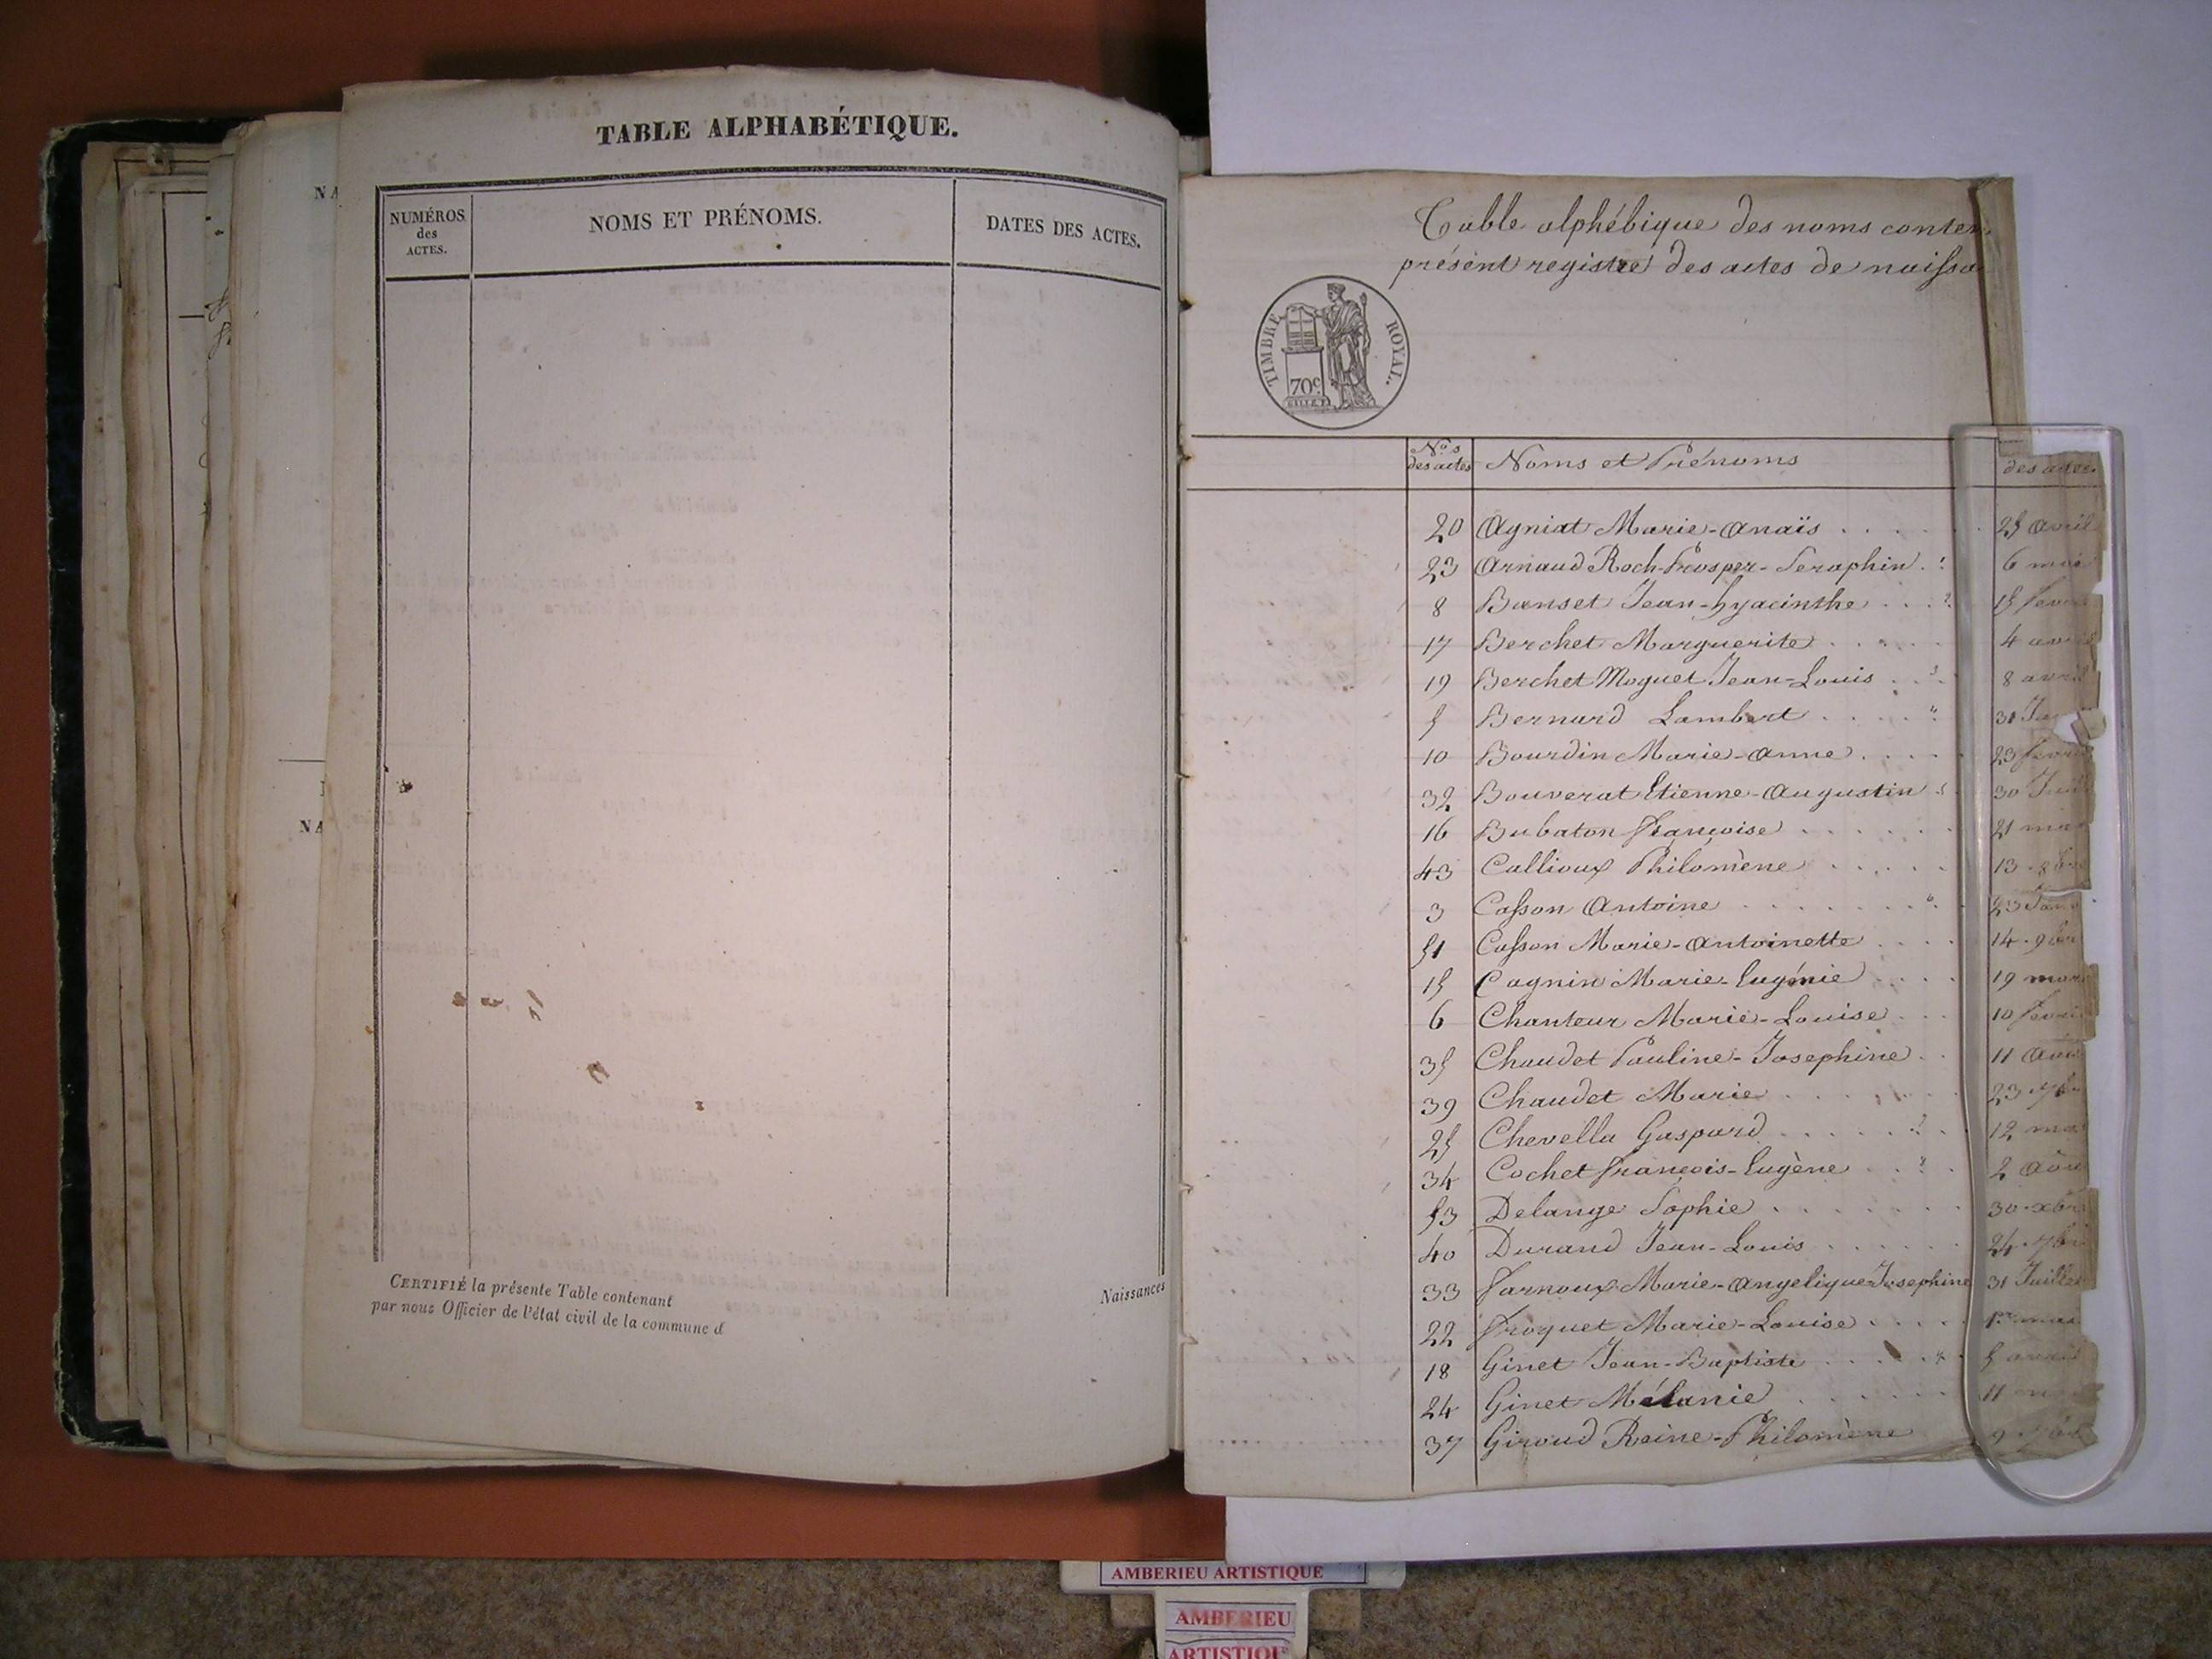 TABLE ALPHABÉTIQUE.
NUMÉROS des ACTES.
NOMS ET PRÉNOMS.
DATES DES ACTES.
CERTIFIÉ la présente Table contenant
Naissances
par nous Officier de l'état civil de la commune d
Table alphébique des noms conten
présent registre des actes de naissa
TIMBRE ROYAL.
70c
Nos des actes
Noms et Prénoms
des actes
20 Agniat Marie-Anaïs 25 avril
23 Arnaud Roch-Prosper-Seraphin 6 mai
8 Banset Jean-hyacinthe 15 fevri
17 Berchet Marguerite 4 avril
19 Berchet Moguet Jean-Louis 8 avril
5 Bernard Lambert 31 Jan
10 Bourdin Marie-Anne 23 fevri
32 Bouverat Etienne-Augustin 30 Juil
16 Bubaton françoise 21 mar
43 Callioux Philomène 13 8bre
3 Casson Antoine 23 Janv
51 Casson Marie-Antoinette 14 9bre
15 Cagnin Marie-Eugénie 19 mars
6 Chanteur Marie-Louise 10 fevri
35 Chaudet Pauline-Josephine 11 Aou
39 Chaudet Marie 23 7b
25 Chevella Gaspard 12 ma
34 Cochet françois-Eugène 2 Aou
53 Delange Sophie 30 xbr
40 Durand Jean-Louis 24 7br
33 farnoux Marie-Angelique Josephine 31 Juillet
22 froquet Marie-Louise 1er mai
18 Ginet Jean-Baptiste 5 avril
24 Ginet Mélanie 11 m
37 Giroud Reine-Philomène 9 7br
AMBERIEU ARTISTIQUE
AMBERIEU
ARTISTIQU